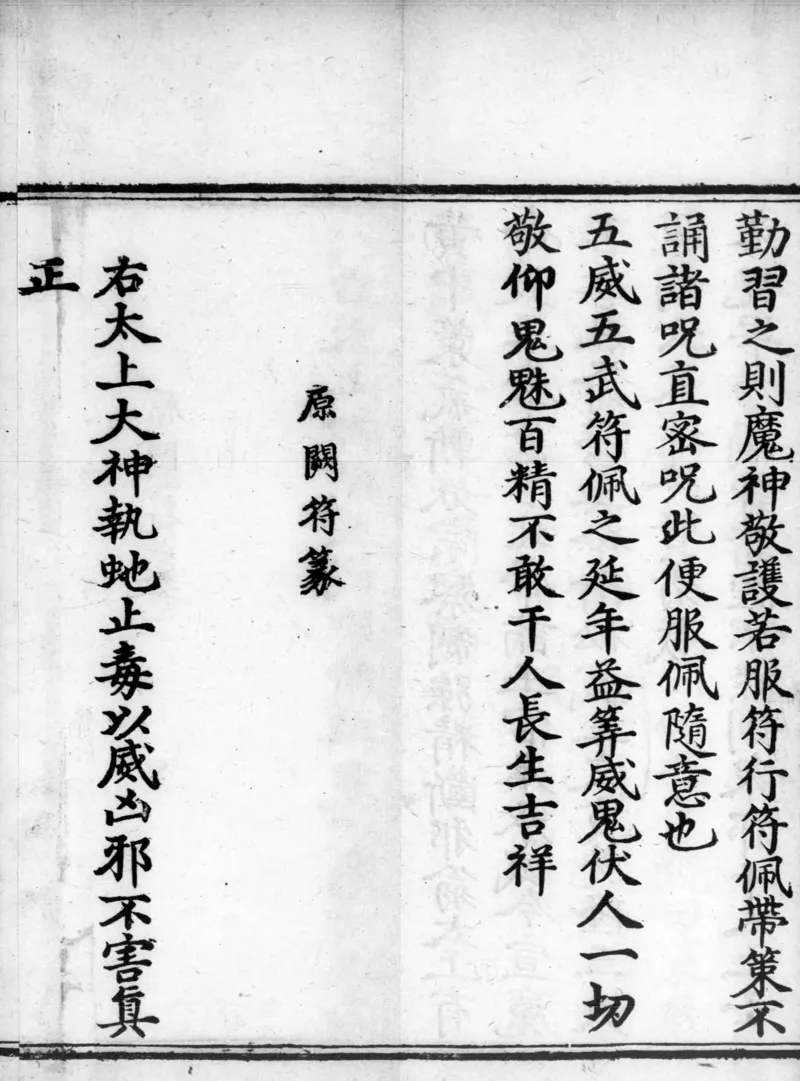 勤習之則魔神敬護若服符行符佩帶策不
誦諸呪直密呪此便服佩隨意也
五威五武符佩之延年益筭威鬼伏人一切
敬仰鬼魅百精不敢干人長生吉祥
原闕符篆
右太上大神執虵止毒以威凶邪不害真
正